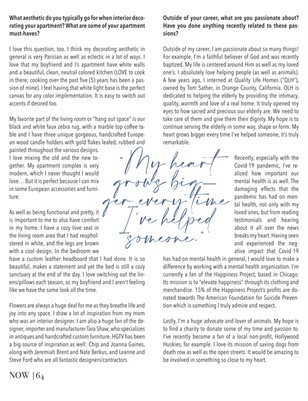 What aesthetic do you typically go for when interior deco-
rating your apartment? What are some of your apartment
must-haves?
I love this question, too. I think my decorating aesthetic in
general is very Parisian as well as eclectic in a lot of ways. I
love that my boyfriend and I's apartment have white walls
and a beautiful, clean, neutral colored kitchen (LOVE to cook
in there; cooking over the past five (5) years has been a pas-
sion of mine). I feel having that white light base is the perfect
canvas for any color implementation. It is easy to switch out
accents if desired too.
My favorite part of the living room or "hang out space" is our
black and white faux zebra rug, with a marble top coffee ta-
ble and I have three unique gorgeous, handcrafted Europe-
an wood candle holders with gold flakes leafed, rubbed and
painted throughout the various designs.
I love mixing the old and the new to-
gether. My apartment complex is very
modern, which I never thought I would
love... But it is perfect because I can mix
in some European accessories and furni-
ture.
As well as being functional and pretty, it
is important to me to also have comfort
in my home. I have a cozy love seat in
the living room area that I had reuphol-
stered in white, and the legs are brown
with a cool design. In the bedroom we
have a custom leather headboard that I had done. It is so
beautiful, makes a statement and yet the bed is still a cozy
sanctuary at the end of the day. I love switching out the lin-
ens/pillows each season, so my boyfriend and I aren't feeling
like we have the same look all the time.
Flowers are always a huge deal for me as they breathe life and
joy into any space. I draw a lot of inspiration from my mom
who was an interior designer. I am also a huge fan of the de-
signer, importer and manufacturer Tara Shaw, who specializes
in antiques and handcrafted custom furniture. HGTV has been
a big source of inspiration as well: Chip and Joanna Gaines,
along with Jeremiah Brent and Nate Berkus, and Leanne and
Steve Ford who are all fantastic designers/contractors.
NOW | 64
"My heart
grows big-
ger every time
I've helped
someone."
Outside of your career, what are you passionate about?
Have you done anything recently related to these pas-
sions?
Outside of my career, I am passionate about so many things!
For example, I'm a faithful believer of God and was recently
baptized. My life is centered around Him as well as my loved
one's. I absolutely love helping people (as well as animals).
A few years ago, I interned at Quality Life Homes ("QLH"),
owned by Tom Sather, in Orange County, California. QLH is
dedicated to helping the elderly by providing the intimacy,
quality, warmth and love of a real home. It truly opened my
eyes to how sacred and precious our elderly are. We need to
take care of them and give them their dignity. My hope is to
continue serving the elderly in some way, shape or form. My
heart grows bigger every time I've helped someone, it's truly
remarkable.
Recently, especially with the
Covid-19 pandemic, I've re-
alized how important our
mental health is as well. The
damaging effects that the
pandemic has had on men-
tal health, not only with my
loved ones, but from reading
testimonials and hearing
about it all over the news
breaks my heart. Having seen
and experienced the neg-
ative impact that Covid-19
has had on mental health in general, I would love to make a
difference by working with a mental health organization. I'm
currently a fan of the Happiness Project, based in Chicago.
Its mission is to "elevate happiness" through its clothing and
merchandise. 15% of the Happiness Project's profits are do-
nated towards The American Foundation for Suicide Preven-
tion which is something I truly admire and respect.
Lastly, I'm a huge advocate and lover of animals. My hope is
to find a charity to donate some of my time and passion to.
I've recently become a fan of a local non-profit, Hollywood
Huskies, for example. I love its mission of saving dogs from
death row as well as the open streets. It would be amazing to
be involved in something so close to my heart.